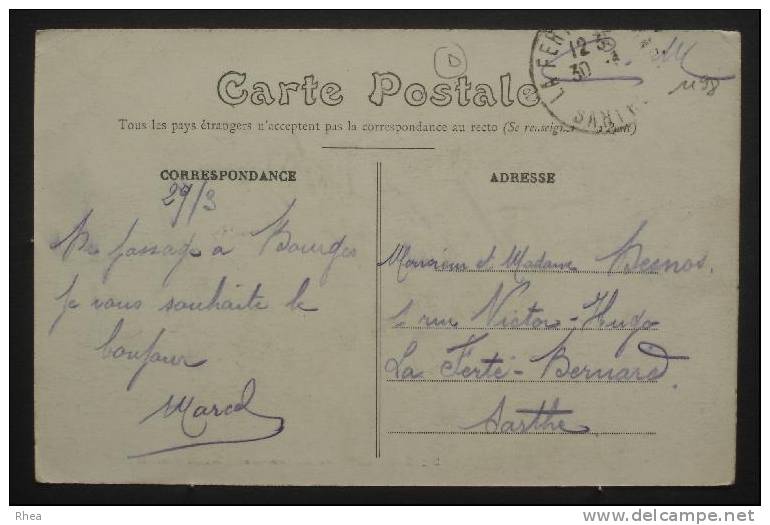 D
Carte Postale
Tous les pays étrangers n'acceptent pas la correspondance au recto (Se renseigner
CORRESPONDANCE
29/3
De passage à Bourges
Je vous souhaite le
bonjour
Marcel
ADRESSE
Monsieur et Madame Besnos.
1 rue Victor-Hugo
La Ferté-Bernard.
Sarthe
LA FER
12
30
SARTHE
1198
Rhea
www.delcampe.net